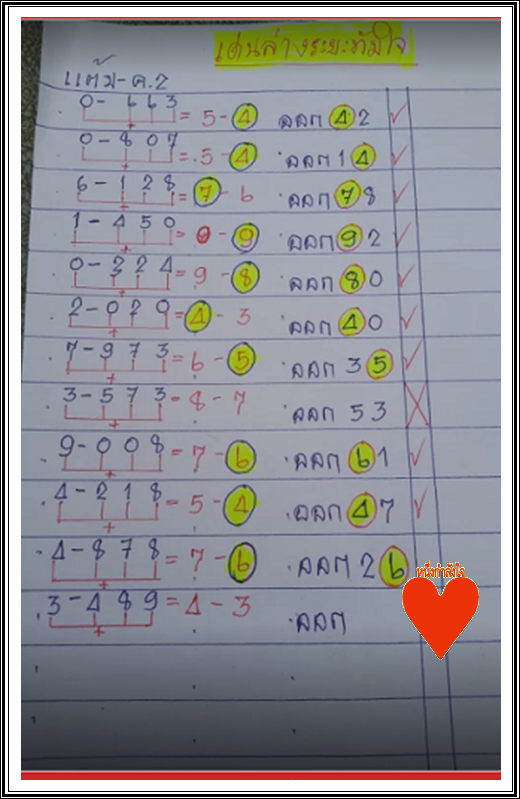 เด่นล่างระยะทำใจ
แต้ม-ค.2
0-663 = 5-4 ออก 42
0-807 = 5-4 ออก 14
6-128 = 7-6 ออก 78
1-450 = 0-9 ออก 92
0-324 = 9-8 ออก 80
2-020 = 4-3 ออก 40
7-973 = 6-5 ออก 35
3-573 - 8-7 ออก 53
9-008 = 7-6 ออก 61
4-218 = 5-4 ออก 47
4-878 = 7-6 ออก 26
หนึ่งกำลังใจ
3-489 = 4-3 ออก